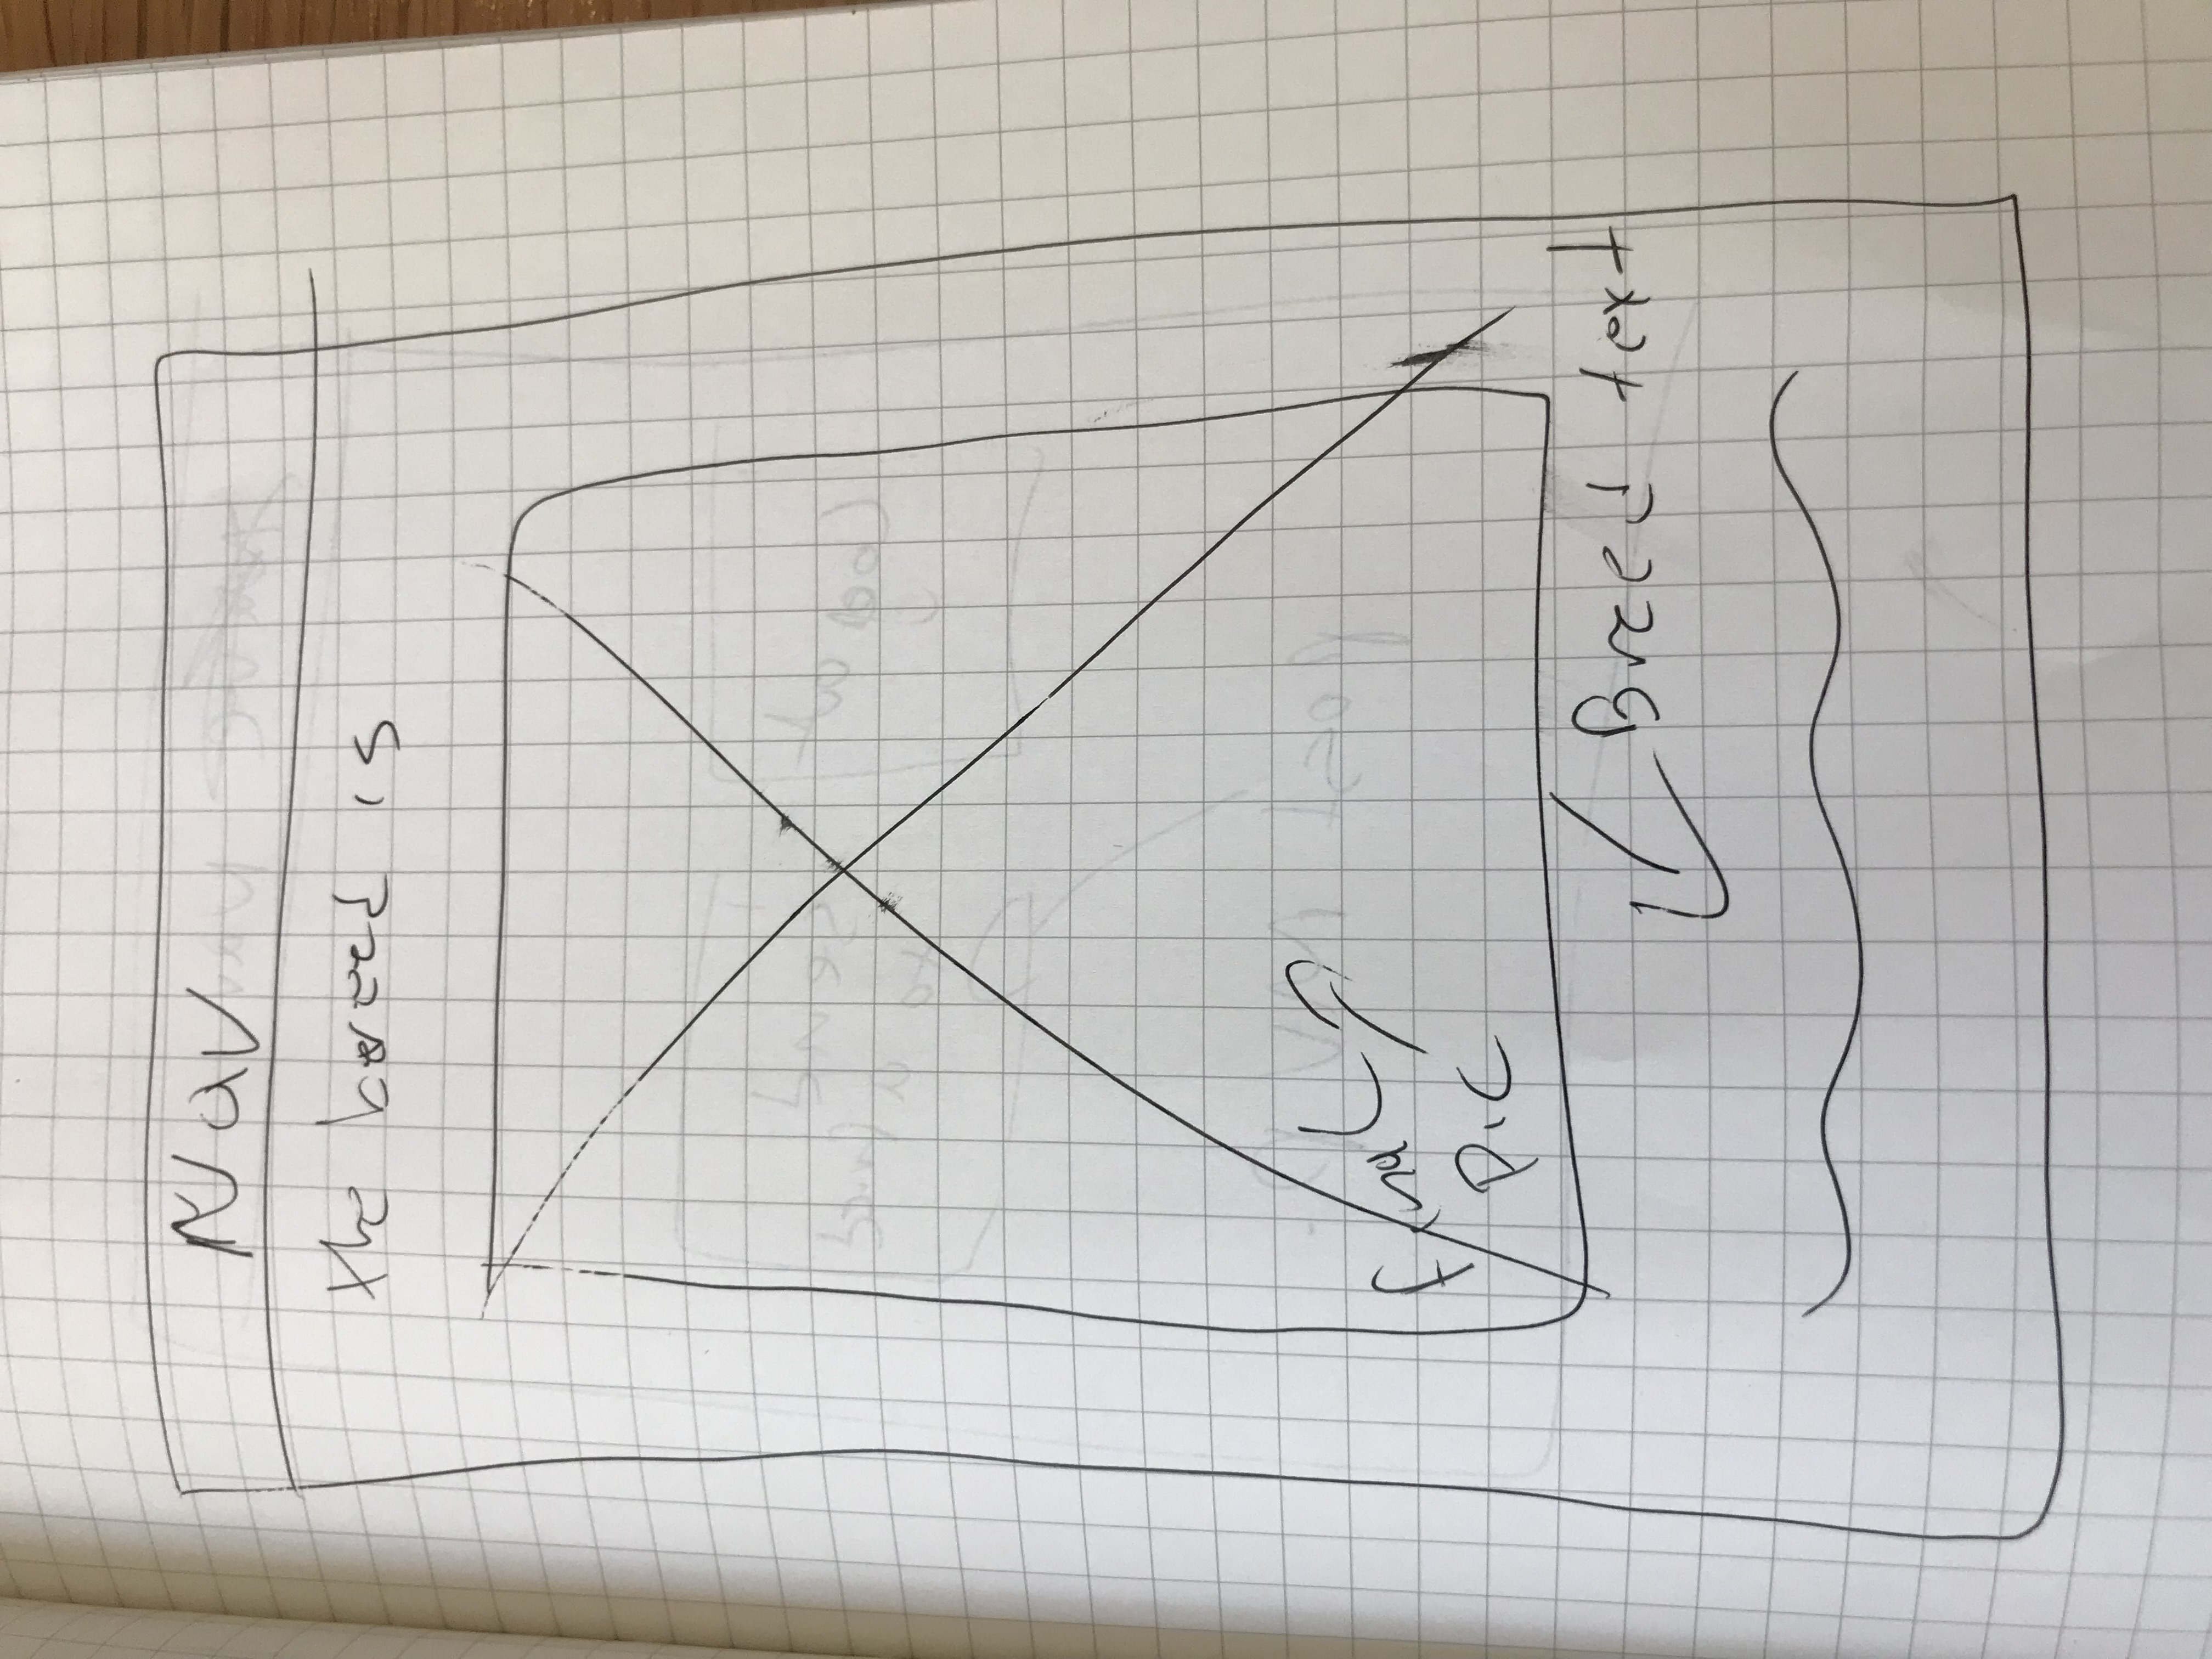 Nav
the breed is
final
pic
Breed text